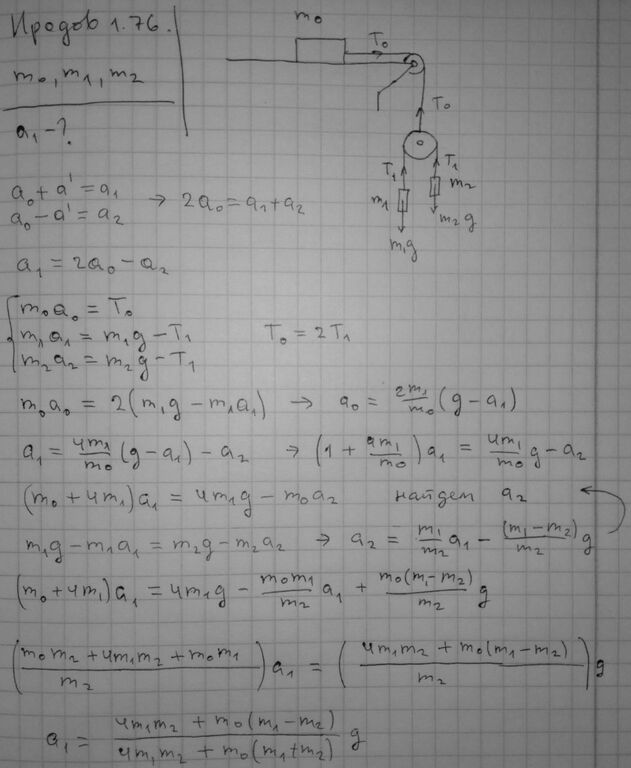 Иродов 1.76.
m₀, m₁, m₂
a₁ - ?
m₀
T₀
T₀
T₁ T₁
m₁ m₂
m₂g
m₁g
a₀ + a' = a₁
a₀ - a' = a₂ → 2a₀ = a₁ + a₂
a₁ = 2a₀ - a₂
m₀a₀ = T₀
m₁a₁ = m₁g - T₁ T₀ = 2T₁
m₂a₂ = m₂g - T₁
m₀a₀ = 2(m₁g - m₁a₁) → a₀ = 2m₁/m₀ (g - a₁)
a₁ = 4m₁/m₀ (g - a₁) - a₂ → (1 + 4m₁/m₀) a₁ = 4m₁/m₀ g - a₂
(m₀ + 4m₁) a₁ = 4m₁g - m₀a₂ найдем a₂
m₁g - m₁a₁ = m₂g - m₂a₂ → a₂ = m₁/m₂ a₁ - (m₁ - m₂)/m₂ g
(m₀ + 4m₁) a₁ = 4m₁g - m₀m₁/m₂ a₁ + m₀(m₁ - m₂)/m₂ g
((m₀m₂ + 4m₁m₂ + m₀m₁)/m₂) a₁ = ((4m₁m₂ + m₀(m₁ - m₂))/m₂) g
a₁ = (4m₁m₂ + m₀(m₁ - m₂))/(4m₁m₂ + m₀(m₁ + m₂)) g